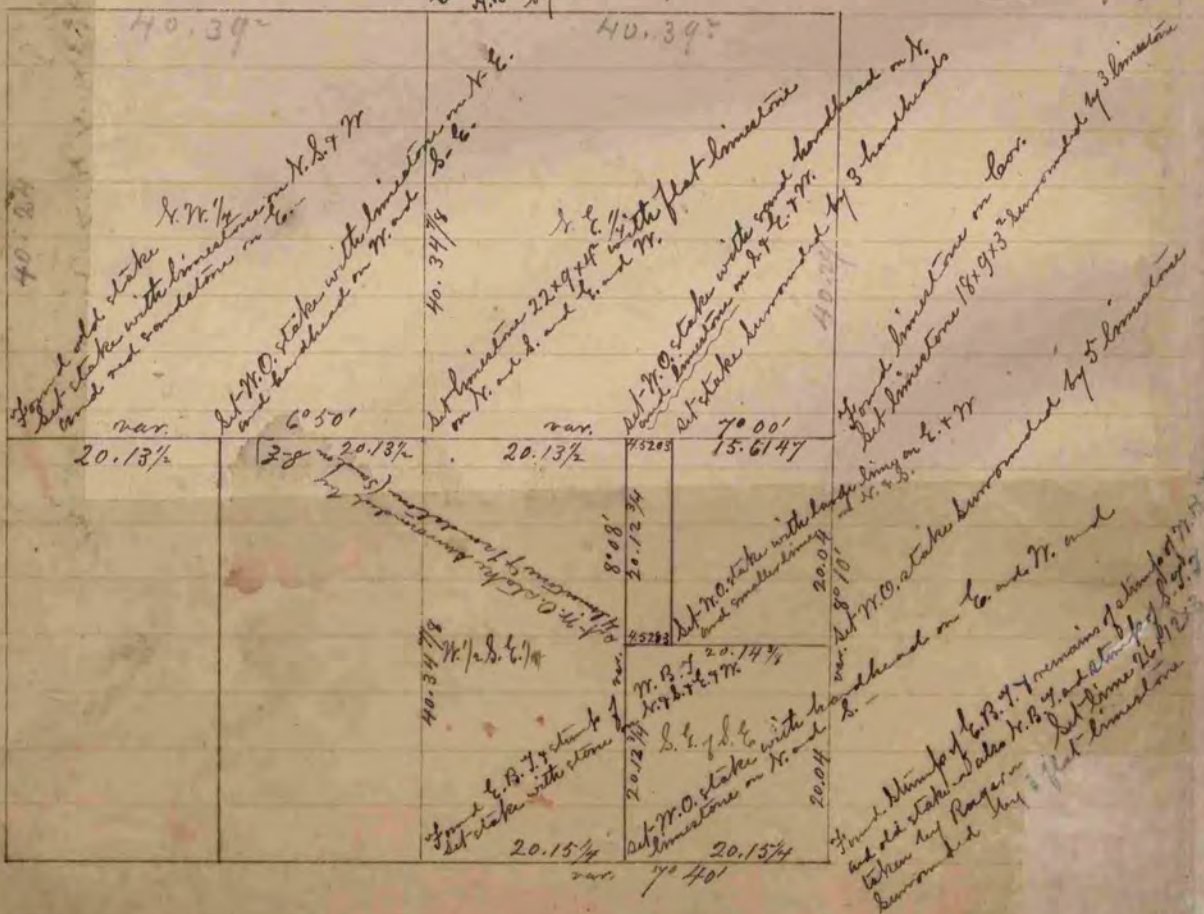 40.39²
40.39²
40.24
N.W.¼
Found old stake
Set stake with limestone on N.S. & W
and red sandstone on E.
Set W.O. stake with limestone on N.E.
and hardhead on W. and S-E.
40.34⅞
N.E.¼
Set limestone 22x9x4² with flat limestone
on N. and S. and E. and W.
Set W.O. stake with sand hardhead on N.
and limestone on S. & E. & W.
Set stake surrounded by 3 hardheads
40.29
Found limestone on Cor.
Set limestone 18x9x3² surrounded by 3 limestone
var. 6°50'
var. 7°00'
20.13½
20.13½
20.13½
4.5203
15.6147
Set W.O. stake surrounded by
8°08'
20.12¾
Set W.O. stake with large lime on E. & W
and smaller lime on N. & S.
20.04
var. 8°10'
Set W.O. stake surrounded by 5 limestone
4.5283
20.14⅜
40.34⅞
W.½ S.E.¼
Found E.B.T. & stump of
Set stake with stone on N. & S. & E. & W.
var.
W.B.T.
20.12¾
S.E. of S.E.
Set W.O. stake with hardhead on E. and W. and
limestone on N. and S.
20.04
Found stump of E.B.T. & remains of stump of W.
and old stake. Also N.B.T. and stump of S.
taken by Set lime 26x12
surrounded by flat limestone
20.15¼
20.15¼
var. 7°40'